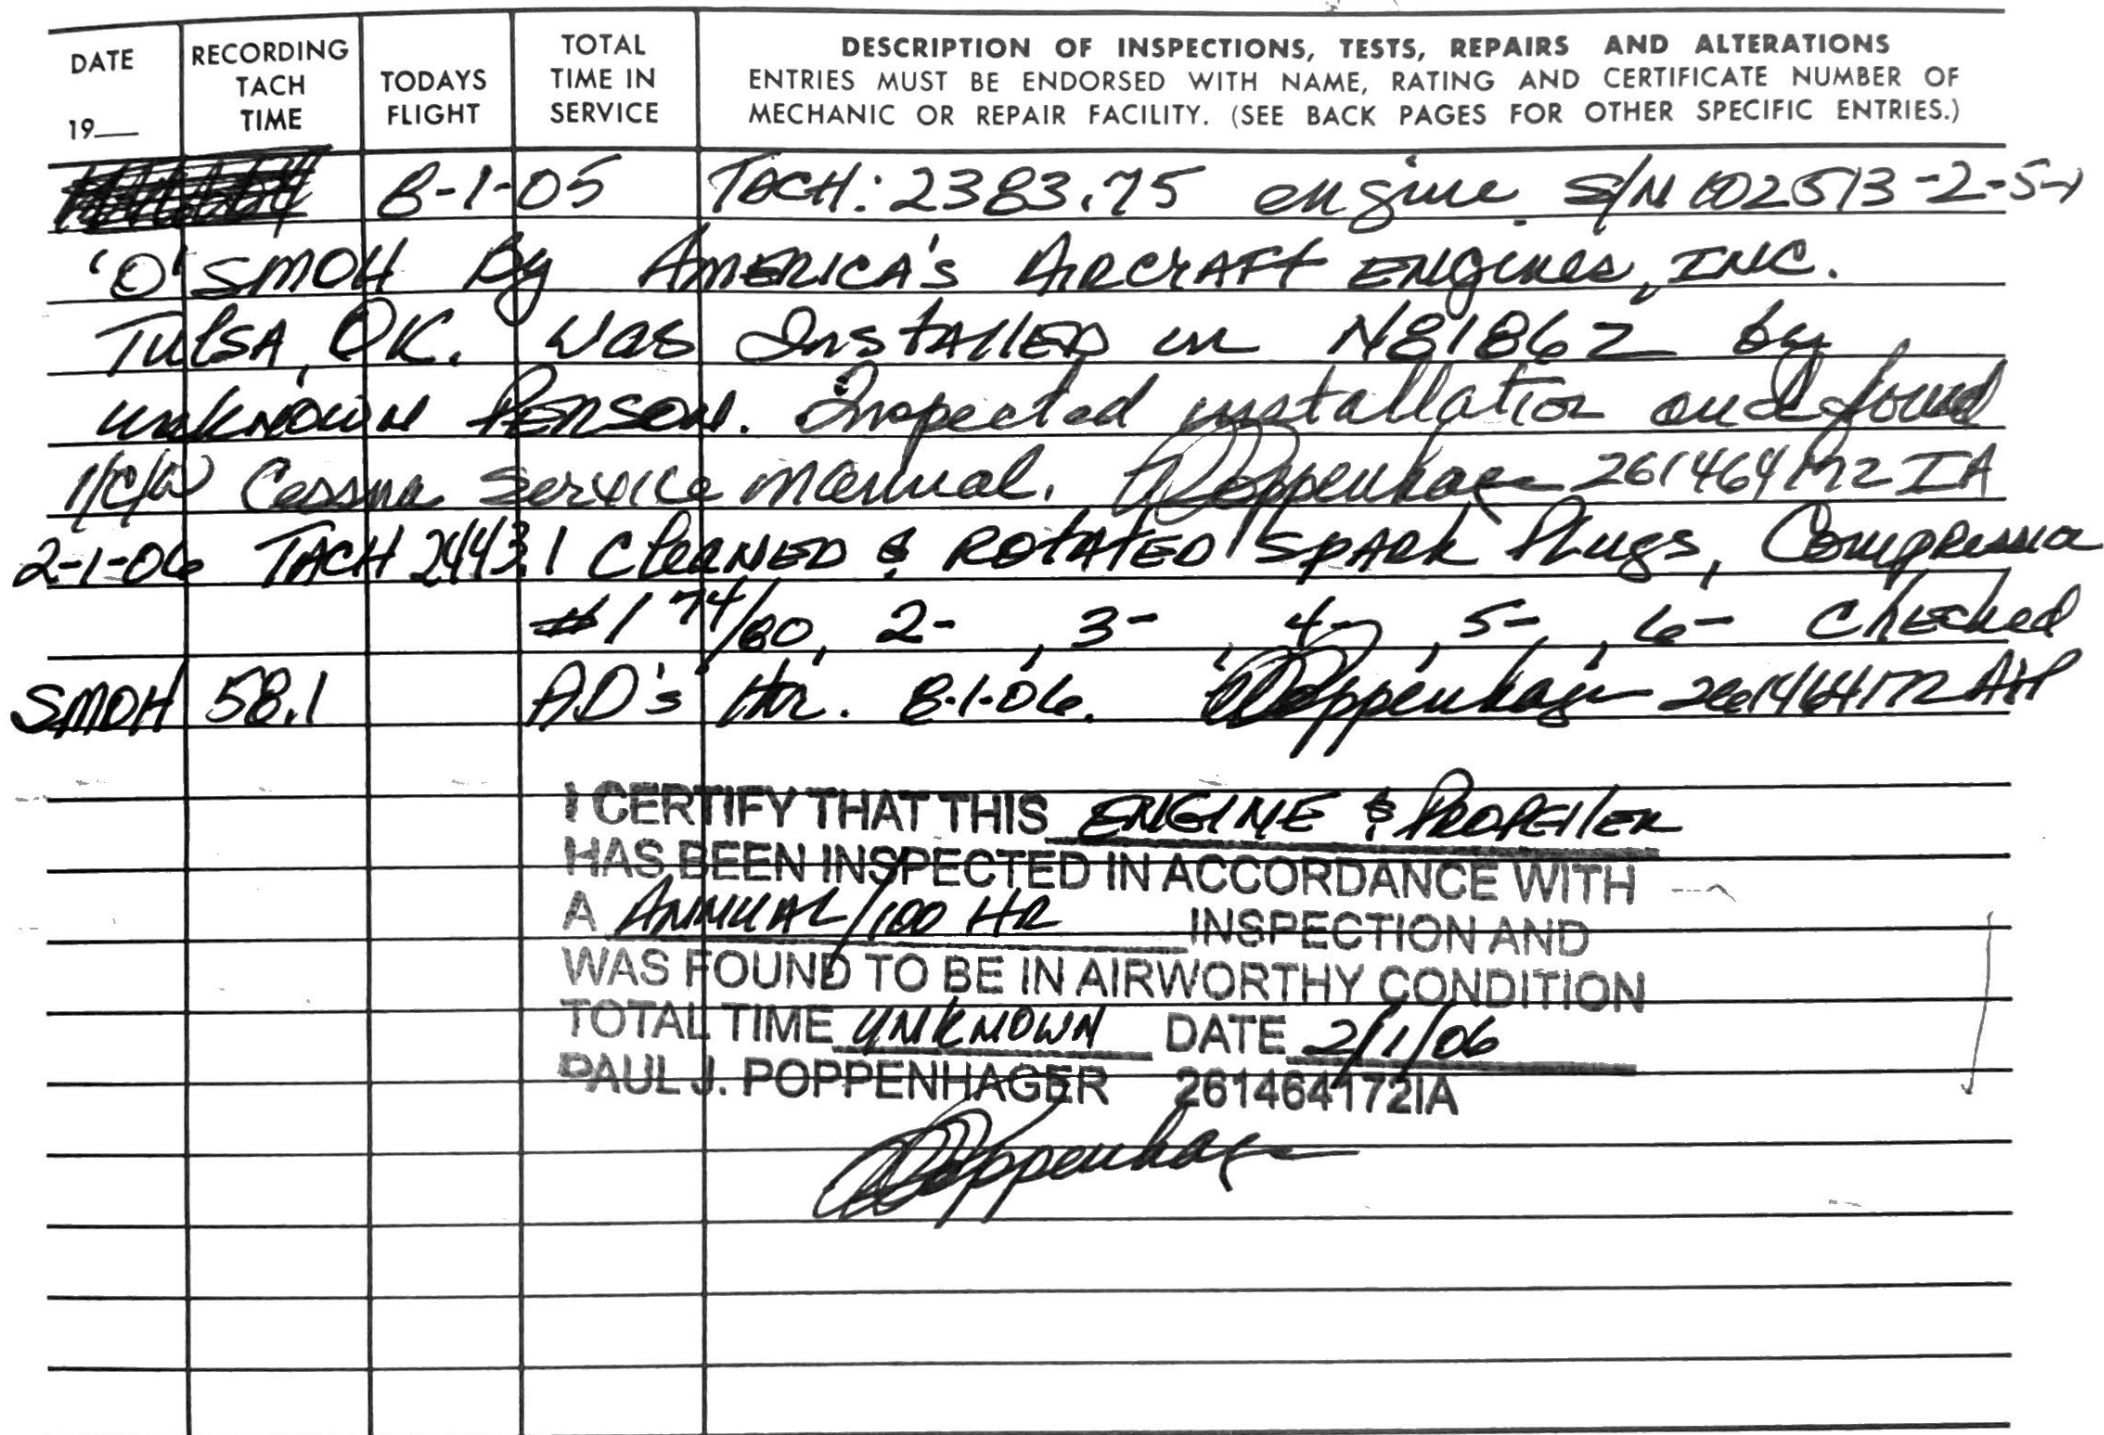 DATE
19__
RECORDING
TACH
TIME
TODAYS
FLIGHT
TOTAL
TIME IN
SERVICE
DESCRIPTION OF INSPECTIONS, TESTS, REPAIRS AND ALTERATIONS
ENTRIES MUST BE ENDORSED WITH NAME, RATING AND CERTIFICATE NUMBER OF
MECHANIC OR REPAIR FACILITY. (SEE BACK PAGES FOR OTHER SPECIFIC ENTRIES.)
8-1-05 TACH: 2383.75 engine S/N
'O' SMOH By AMERICA'S AIRCRAFT ENGINES, INC.
TULSA, OK. was INSTALLED in N81862 by
UNKNOWN PERSON. Inspected installation and found
I/C/W Cessna Service Manual. Poppenhager 261464172 IA
2-1-06 TACH 2443.1 CLEANED & ROTATED SPARK Plugs, Compression
#1 74/80, 2- , 3- , 4- , 5- , 6- Checked
SMOH 58.1 A.D's 8-1-06. Poppenhager 261464172 A&P
I CERTIFY THAT THIS ENGINE & PROPELLER
HAS BEEN INSPECTED IN ACCORDANCE WITH
A ANNUAL/100 HR INSPECTION AND
WAS FOUND TO BE IN AIRWORTHY CONDITION
TOTAL TIME UNKNOWN DATE 2/1/06
PAUL J. POPPENHAGER 261464172IA
Poppenhager